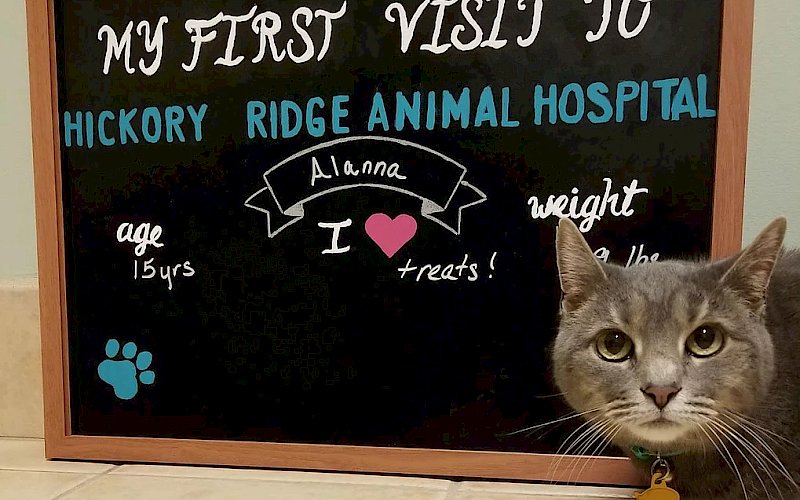 MY FIRST VISIT TO
HICKORY RIDGE ANIMAL HOSPITAL
Alanna
age
15yrs
I
treats!
weight
lbs